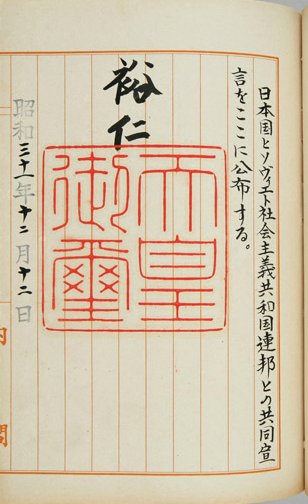 日本国とソヴィエト社会主義共和国連邦との共同宣
言をここに公布する。
裕仁
天皇
御璽
昭和三十一年十二月十二日
内閣